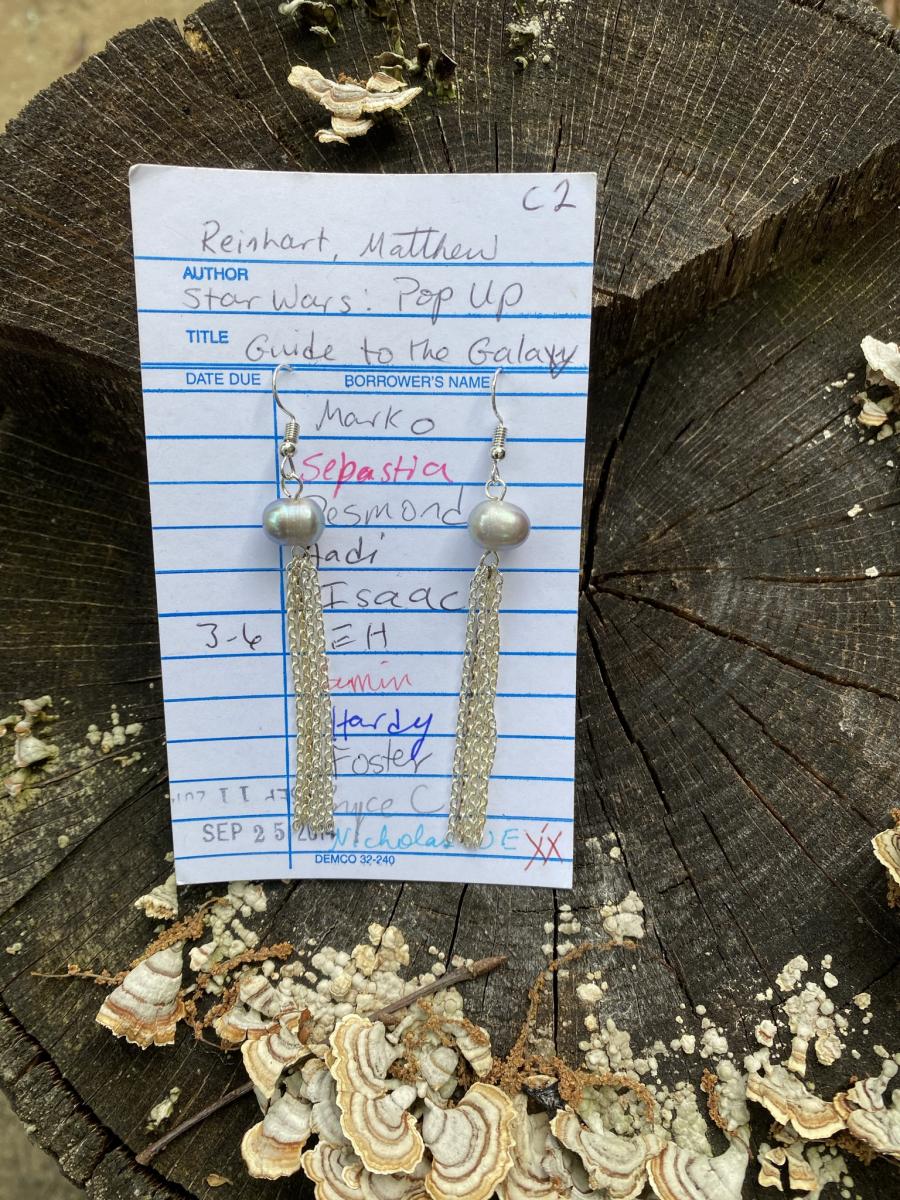 C2
Reinhart, Matthew
AUTHOR
Star Wars: Pop Up
TITLE Guide to the Galaxy
DATE DUE BORROWER'S NAME
Marko
Sebastia
esmond
adi
Isaac
3-6 EH
amin
Hardy
Foster
yce C
SEP 25 2014 Nicholas E XX
DEMCO 32-240